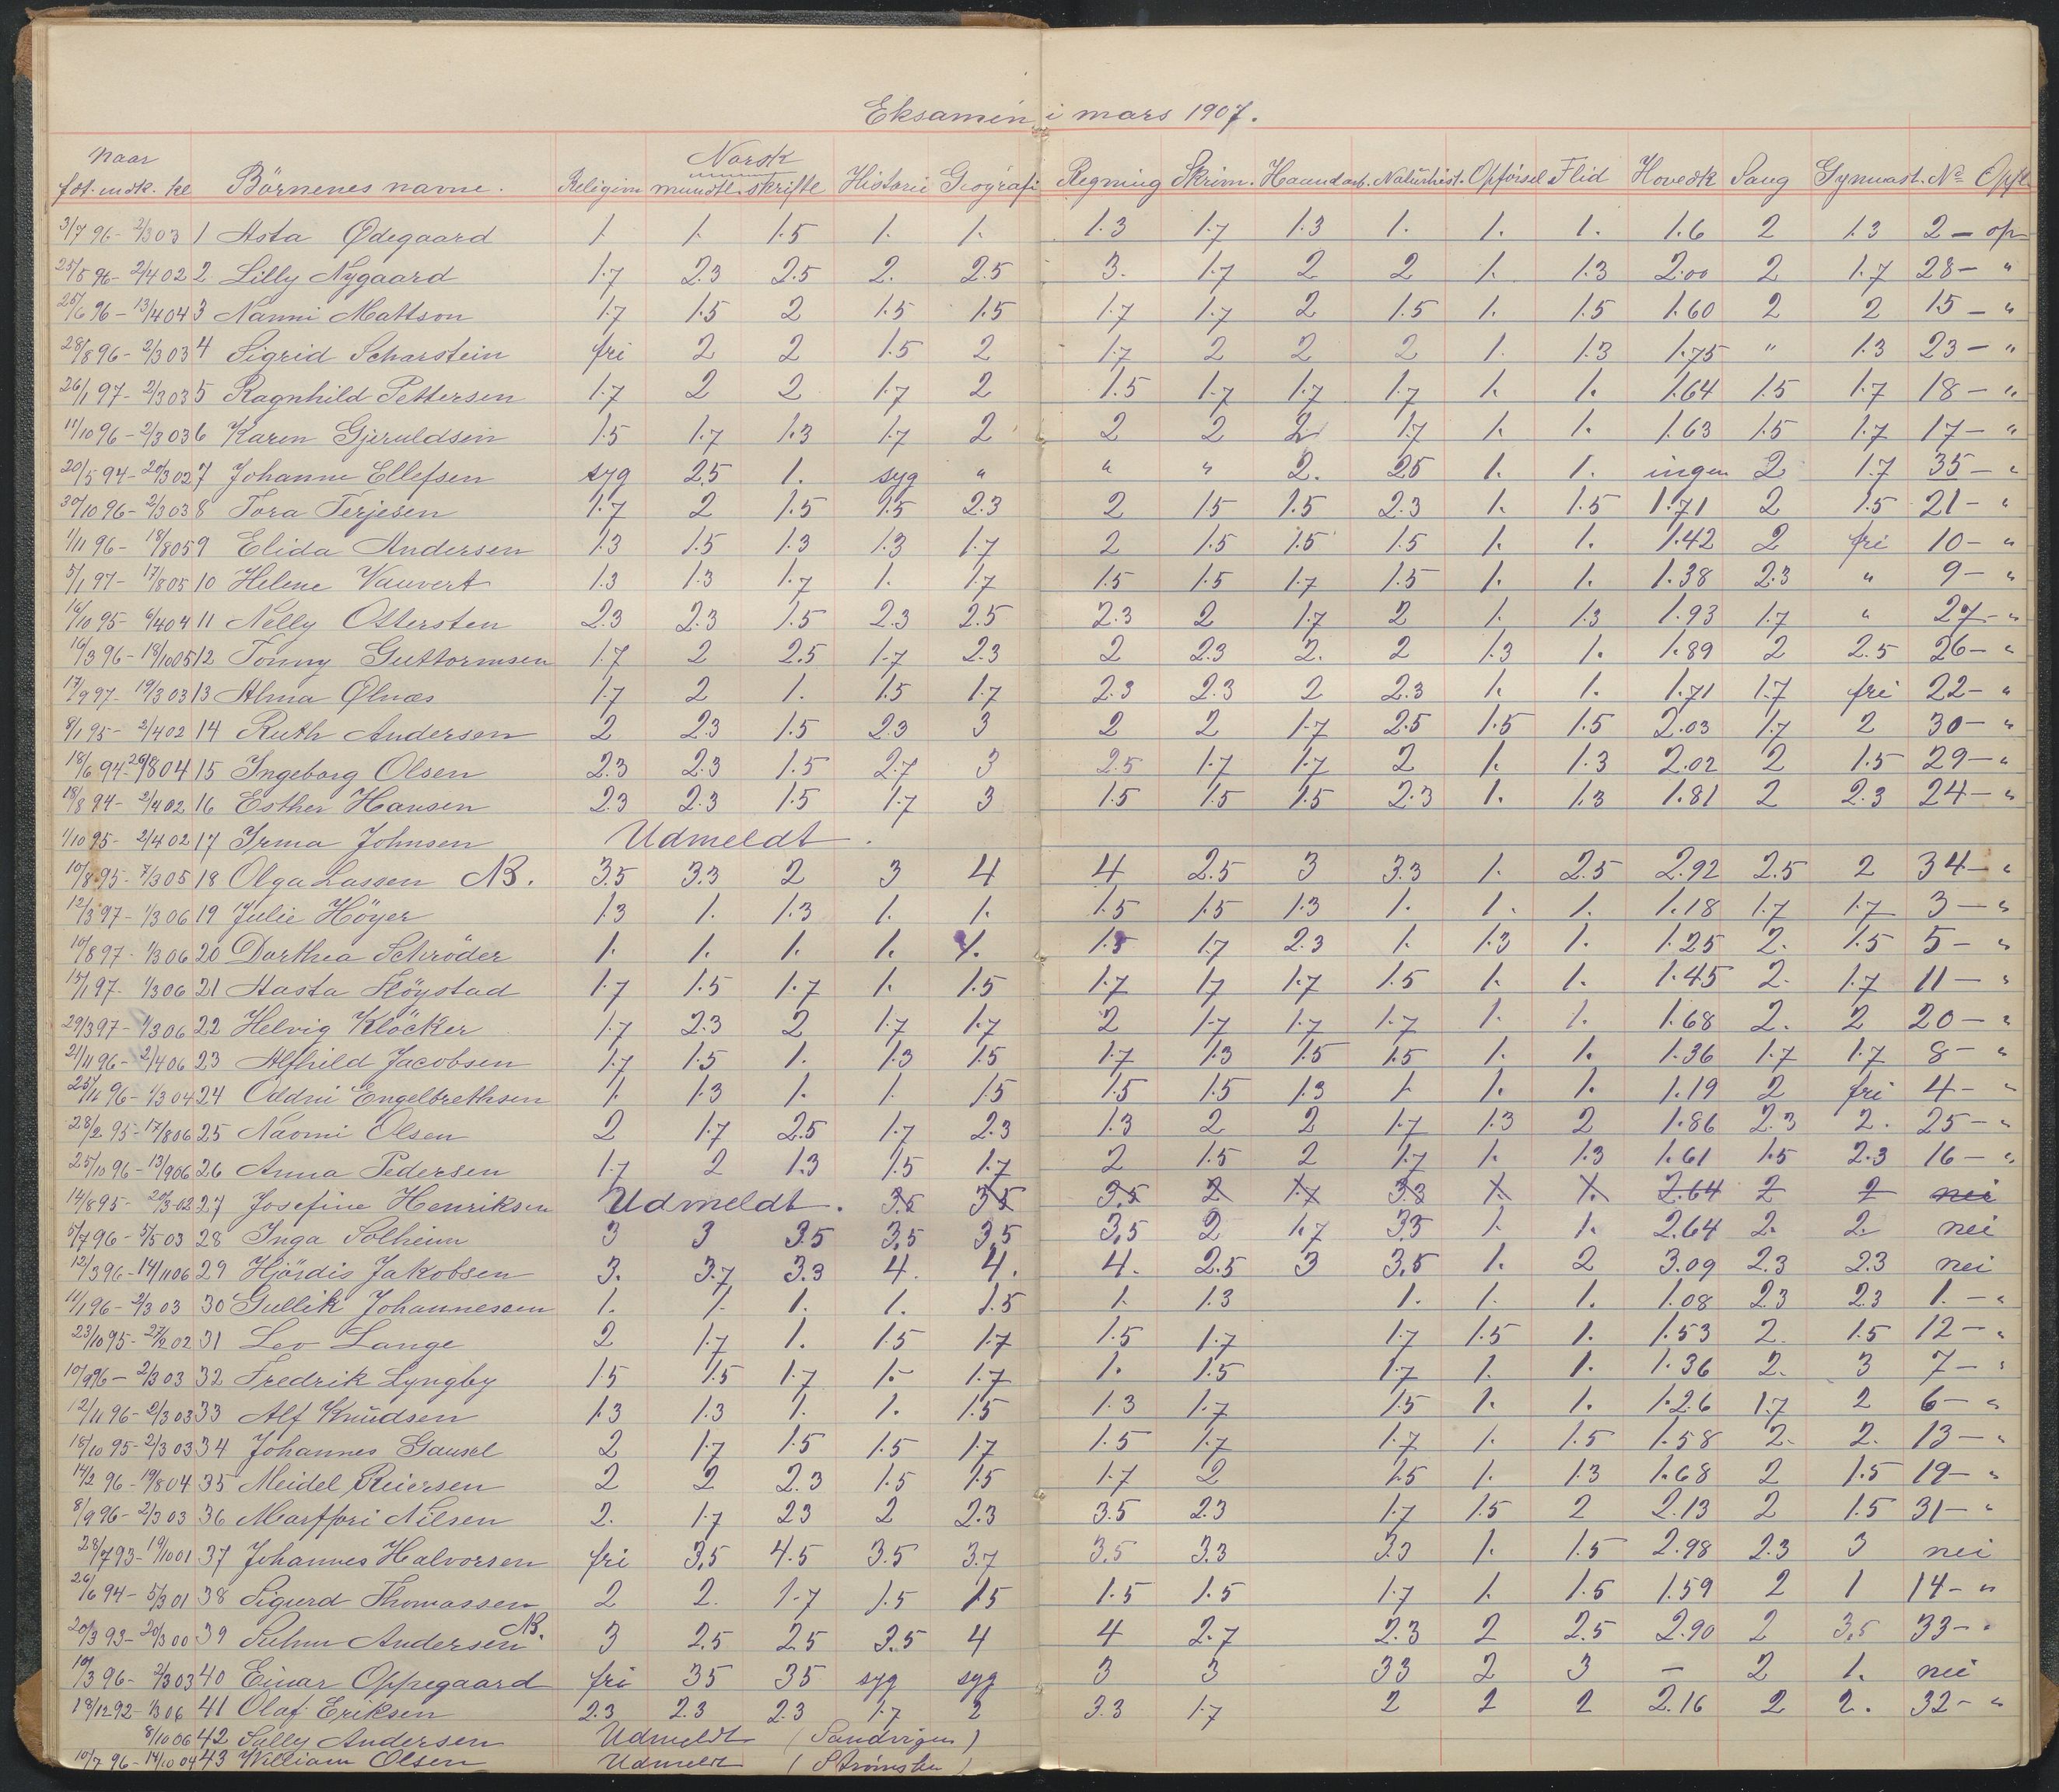 Eksamen i mars 1907.
Naar Norsk
föd. indk. kl Börnenes navne. Religion mundtl. skriftl Historie Geografi Regning Skriv. Haandarb. Naturhist. Opförsel Flid Hovedk Sang Gymnast. No Opfl.
3/7 96 - 2/3 03 1 Asta Ødegaard 1. 1. 1.5 1. 1. 1.3 1.7 1.3 1. 1. 1. 1.6 2 1.3 2 - op
25/5 96 - 2/4 02 2 Lilly Nygaard 1.7 2.3 2.5 2. 2.5 3. 1.7 2 2 1. 1.3 2.00 2 1.7 28 - "
25/6 96 - 13/4 04 3 Nanni Mattson 1.7 1.5 2 1.5 1.5 1.7 1.7 2 1.5 1. 1.5 1.60 2 2 15 - "
28/8 96 - 2/3 03 4 Sigrid Scharstein fri 2 2 1.5 2 1.7 2 2 2 1. 1.3 1.75 " 1.3 23 - "
26/1 97 - 2/3 03 5 Ragnhild Pettersen 1.7 2 2 1.7 2 1.5 1.7 1.7 1.7 1. 1. 1.64 1.5 1.7 18 - "
11/10 96 - 2/3 03 6 Karen Gjeruldsen 1.5 1.7 1.3 1.7 2 2 2 2 1.7 1. 1. 1.63 1.5 1.7 17 - "
20/5 94 - 20/3 02 7 Johanne Ellefsen syg 2.5 1. syg " " " 2. 2.5 1. 1. ingen 2 1.7 35 - "
30/10 96 - 2/3 03 8 Tora Terjesen 1.7 2 1.5 1.5 2.3 2 1.5 1.5 2.3 1. 1.5 1.71 2 1.5 21 - "
1/11 96 - 18/8 05 9 Elida Andersen 1.3 1.5 1.3 1.3 1.7 2 1.5 1.5 1.5 1. 1. 1.42 2 fri 10 - "
5/1 97 - 17/8 05 10 Helene Vauvert 1.3 1.3 1.7 1. 1.7 1.5 1.5 1.7 1.5 1. 1. 1.38 2.3 " 9 - "
16/10 95 - 6/4 04 11 Nelly Ottersten 2.3 2.3 1.5 2.3 2.5 2.3 2 1.7 2 1. 1.3 1.93 1.7 " 27 - "
16/3 96 - 18/10 05 12 Tonny Guttormsen 1.7 2 2.5 1.7 2.3 2 2.3 2. 2 1.3 1. 1.89 2 2.5 26 - "
17/9 97 - 19/3 03 13 Alma Ølnæs 1.7 2 1. 1.5 1.7 2.3 2.3 2 2.3 1. 1. 1.71 1.7 fri 22 - "
8/1 95 - 2/4 02 14 Ruth Andersen 2 2.3 1.5 2.3 3 2 2 1.7 2.5 1.5 1.5 2.03 1.7 2 30 - "
18/6 94 - 26/8 04 15 Ingeborg Olsen 2.3 2.3 1.5 2.7 3 2.5 1.7 1.7 2 1. 1.3 2.02 2 1.5 29 - "
18/8 94 - 2/4 02 16 Esther Hansen 2.3 2.3 1.5 1.7 3 1.5 1.5 1.5 2.3 1. 1.3 1.81 2 2.3 24 - "
1/10 95 - 2/4 02 17 Irma Johnsen Udmeldt.
10/8 95 - 7/3 05 18 Olga Lassen NB. 3.5 3.3 2 3 4 4 2.5 3 3.3 1. 2.5 2.92 2.5 2 34 - "
12/3 97 - 1/3 06 19 Julie Höyer 1.3 1. 1.3 1. 1. 1.5 1.5 1.3 1. 1. 1. 1.18 1.7 1.7 3 - "
10/8 97 - 1/3 06 20 Dorthea Schröder 1. 1. 1. 1. 1. 1.5 1.7 2.3 1. 1.3 1. 1.25 2. 1.5 5 - "
15/1 97 - 1/3 06 21 Aasta Flöystad 1.7 1.5 1.7 1. 1.5 1.7 1.7 1.7 1.5 1. 1. 1.45 2. 1.7 11 - "
29/3 97 - 1/3 06 22 Helvig Klöcker 1.7 2.3 2 1.7 1.7 2 1.7 1.7 1.7 1. 1. 1.68 2. 2 20 - "
21/11 96 - 2/4 06 23 Alfhild Jacobsen 1.7 1.5 1. 1.3 1.5 1.7 1.3 1.5 1.5 1. 1. 1.36 1.7 1.7 8 - "
25/11 96 - 1/3 04 24 Oddni Engelbrethsen 1. 1.3 1. 1. 1.5 1.5 1.5 1.3 1 1. 1. 1.19 2 fri 4 - "
28/2 95 - 17/8 06 25 Naomi Olsen 2 1.7 2.5 1.7 2.3 1.3 2 2 1.7 1.3 2 1.86 2.3 2. 25 - "
25/10 96 - 13/9 06 26 Anna Pedersen 1.7 2 1.3 1.5 1.7 2 1.5 2 1.7 1. 1.3 1.61 1.5 2.3 16 - "
14/8 95 - 20/3 02 27 Josefine Henriksen Udmeldt. 3.5 3.5 3.5 2 1.7 3.3 1. 1. 2.64 2 2 nei
5/7 96 - 5/5 03 28 Inga Solheim 3 3 3.5 3.5 3.5 3.5 2 1.7 3.3 1. 1. 2.64 2. 2. nei
12/3 96 - 14/11 06 29 Hjördis Jakobsen 3. 3.7 3.3 4. 4. 4. 2.5 3 3.5 1. 2 3.09 2.3 2.3 nei
11/1 96 - 2/3 03 30 Gullik Johannessen 1. 1. 1. 1. 1.5 1. 1.3 1. 1. 1. 1.08 2.3 2.3 1. - "
23/10 95 - 27/2 02 31 Leo Lange 2 1.7 1. 1.5 1.7 1.5 1.7 1.7 1.5 1. 1.53 2. 1.5 12 - "
10/9 96 - 2/3 03 32 Fredrik Lyngby 1.5 1.5 1.7 1. 1.7 1. 1.5 1.7 1. 1. 1.36 2. 3 7 - "
12/11 96 - 2/3 03 33 Alf Knudsen 1.3 1.3 1. 1. 1.5 1.3 1.7 1.5 1. 1. 1.26 1.7 2 6 - "
18/10 95 - 2/3 03 34 Johannes Gausel 2 1.7 1.5 1.5 1.7 1.5 1.7 1.7 1. 1.5 1.58 2. 2. 13 - "
14/2 96 - 19/8 04 35 Meidel Reiersen 2 2 2.3 1.5 1.5 1.7 2 1.5 1. 1.3 1.68 2 1.5 19 - "
8/9 96 - 2/3 03 36 Nilsen 2. 1.7 2.3 2 2.3 3.5 2.3 1.7 1.5 2 2.13 2 1.5 31 - "
28/7 93 - 19/10 01 37 Johannes Halvorsen fri 3.5 4.5 3.5 3.7 3.5 3.3 3.3 1. 1.5 2.98 2.3 3 nei
26/6 94 - 5/3 01 38 Sigurd Thomassen 2 2. 1.7 1.5 1.5 1.5 1.5 1.7 1. 1.5 1.59 2 1 14 - "
20/3 93 - 20/3 00 39 Suhm Andersen NB. 3 2.5 2.5 3.5 4 4 2.7 2.3 2 2.5 2.90 2 3.5 33 - "
10/3 96 - 2/3 03 40 Einar Oppegaard fri 3.5 3.5 syg syg 3 3 3.3 2 3 - 2 1. nei
18/12 92 - 1/3 06 41 Olaf Eriksen 2.3 2.3 2.3 1.7 2 3.3 1.7 2 2 2 2.16 2 2. 32 - "
8/10 06 42 Sally Andersen Udmeldt (Sandvigen)
10/7 96 - 14/10 04 43 William Olsen Udmeldt